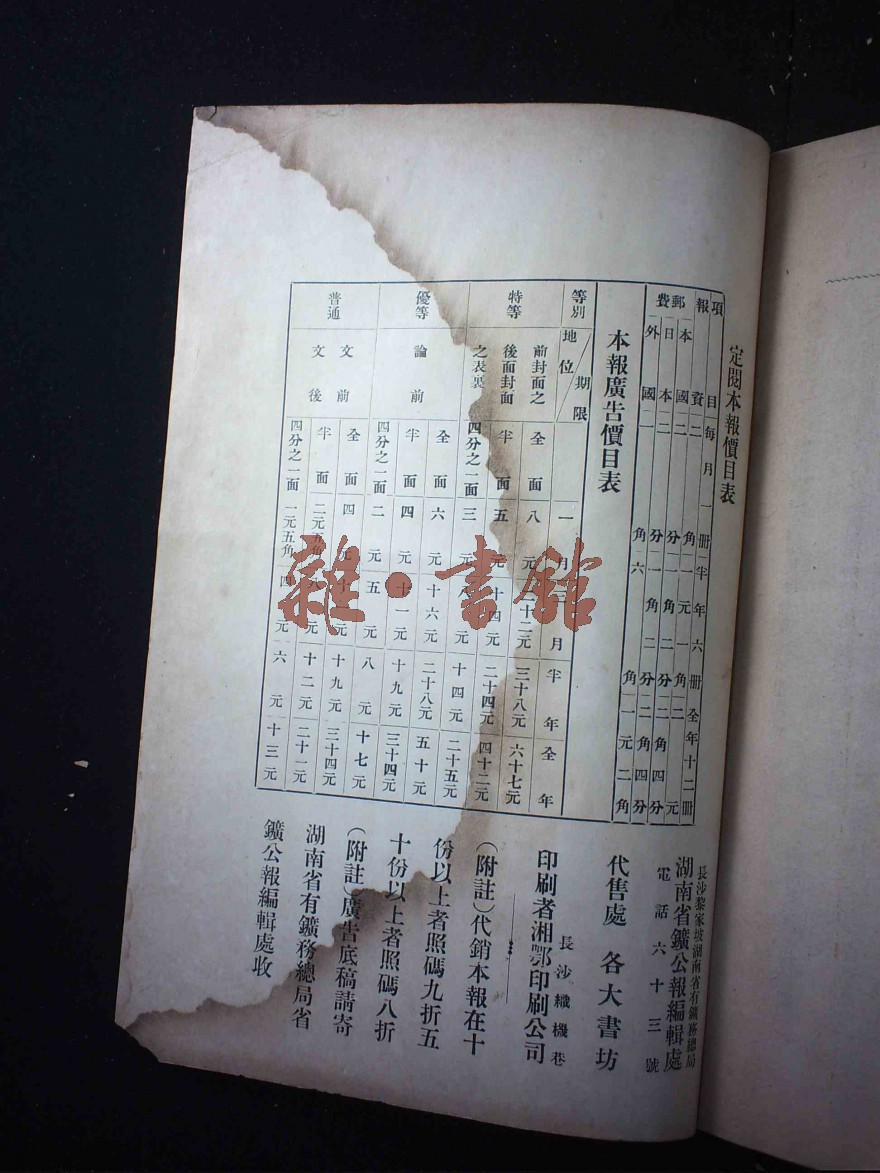 定閱本報價目表
項目 每月一冊 半年六冊 全年十二冊
報資 二角 一元一角 二元
郵費 本國 二分 一角二分 二角四分
日本 二分 一角二分 二角四分
外國 一角 六角 一元二角
本報廣告價目表
等別 地位 期限 一月 三月 半年 全年
特等 前封面之 全面 八元 二十二元 三十八元 六十七元
後面封面 半面 五元 十四元 二十四元 四十二元
之表裏 四分之一面 三元 八元 十四元 二十五元
優等 論前 全面 六元 十六元 二十八元 五十元
半面 四元 十一元 十九元 三十四元
四分之一面 二元 五元 八元 十七元
普通 文前 全面 四元 十元 十九元 三十四元
文後 半面 二元五角 八元 十二元 二十一元
四分之一面 一元五角 四元 六元 十三元
長沙黎家坡湖南省有鑛務總局
湖南省鑛公報編輯處
電話六十三號
代售處 各大書坊
長沙織機巷
印刷者湘鄂印刷公司
(附註)代銷本報在十
份以上者照碼九折五
十份以上者照碼八折
(附註)廣告底稿請寄
湖南省有鑛務總局省
鑛公報編輯處收
雜·書館